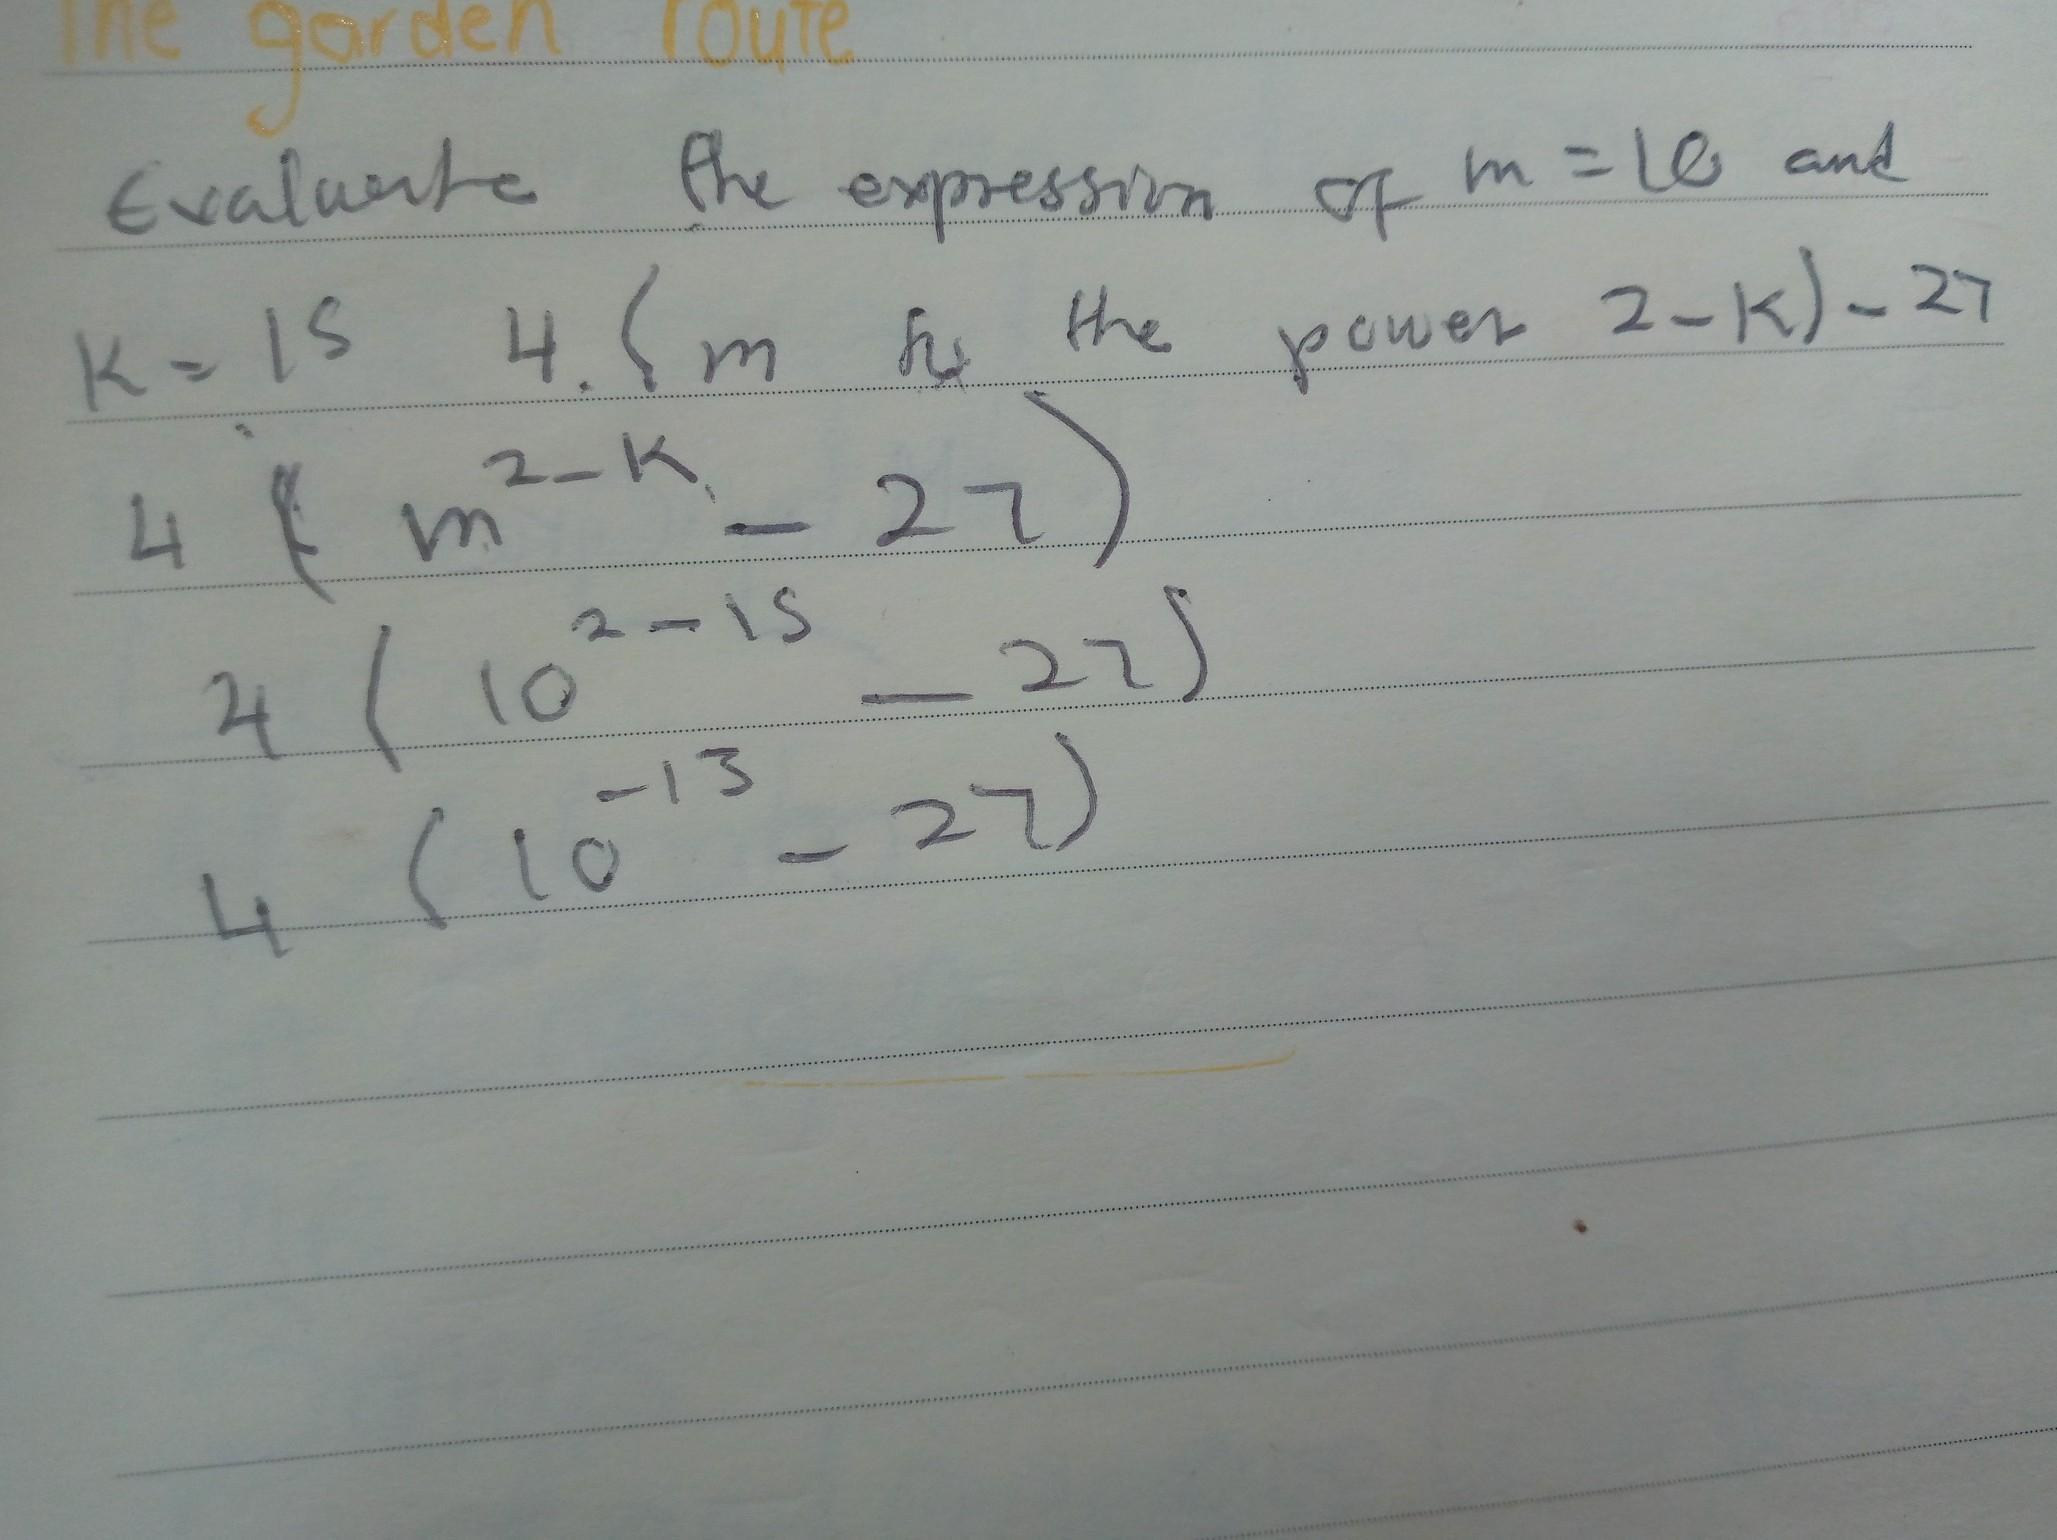 The garden route
Evaluate the expression of m = 10 and
K = 15 4. (m to the power 2 - K) - 27
4 ( m^{2-K} - 27)
4 ( 10^{2-15} - 27)
4 (10^{-13} - 27)